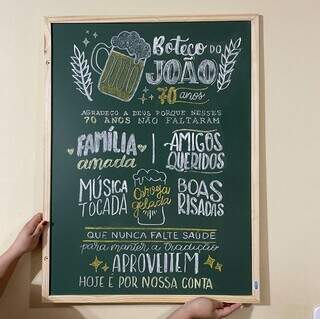 Boteco do
JOÃO
70 anos
AGRADEÇO A DEUS PORQUE NESSES
70 ANOS NÃO FALTARAM
FAMÍLIA
amada
AMIGOS
QUERIDOS
MÚSICA
TOCADA
Cerveja
gelada
BOAS
RISADAS
QUE NUNCA FALTE SAÚDE
para manter a tradição
APROVEITEM
HOJE É POR NOSSA CONTA